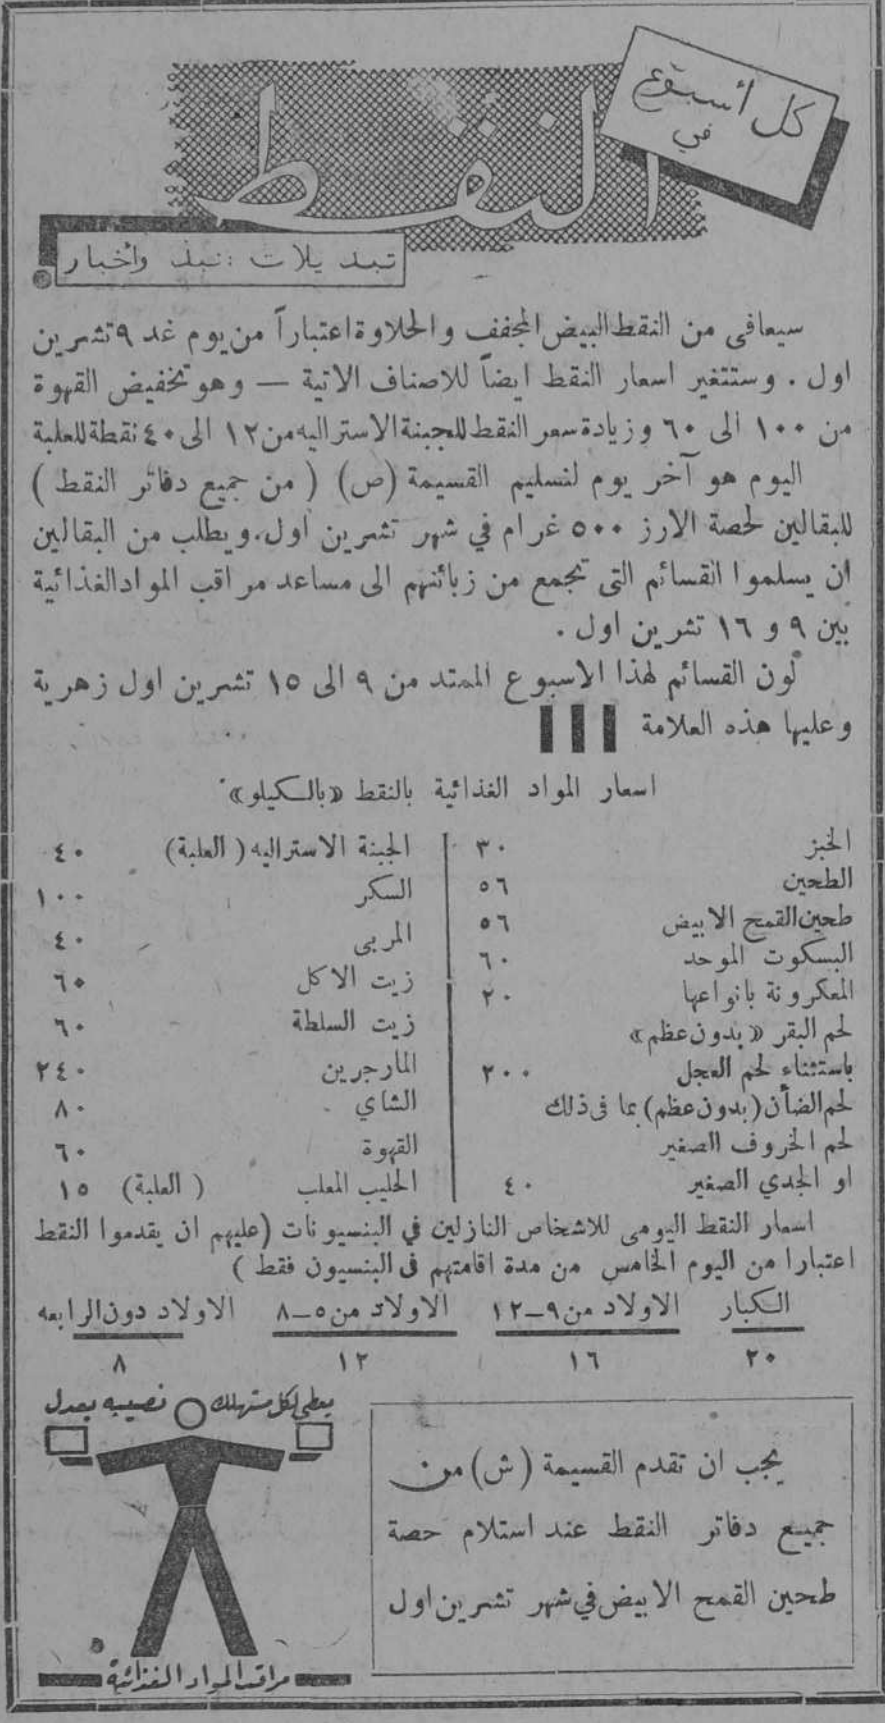 كل أسبوع
في
النقط
تبديلات : نبذ وأخبار
سيعافى من النقط البيض المجفف والحلاوة اعتباراً من يوم غد ٩ تشرين
اول . وستتغير اسعار النقط ايضاً للاصناف الاتية — وهو تخفيض القهوة
من ١٠٠ الى ٦٠ وزيادة سعر النقط للجبنة الاستراليه من ١٢ الى ٤٠ نقطة للعلبة
اليوم هو آخر يوم لتسليم القسيمة (ص) ( من جميع دفاتر النقط )
للبقالين لحصة الارز ٥٠٠ غرام في شهر تشرين اول . ويطلب من البقالين
ان يسلموا القسائم التى تجمع من زبائنهم الى مساعد مراقب المواد الغذائية
بين ٩ و ١٦ تشرين اول .
لون القسائم لهذا الاسبوع الممتد من ٩ الى ١٥ تشرين اول زهرية
وعليها هذه العلامة
اسعار المواد الغذائية بالنقط «بالكيلو»
الخبز ٣٠
الطحين ٥٦
طحين القمح الابيض ٥٦
البسكوت الموحد ٦٠
المعكرونة بانواعها ٢٠
لحم البقر «بدون عظم»
باستثناء لحم العجل ٢٠٠
لحم الضأن (بدون عظم) بما فى ذلك
لحم الخروف الصغير
او الجدي الصغير ٤٠
الجبنة الاستراليه ( العلبة) ٤٠
السكر ١٠٠
المربى ٤٠
زيت الاكل ٦٠
زيت السلطة ٦٠
المارجرين ٢٤٠
الشاي ٨٠
القهوة ٦٠
الحليب المعلب ( العلبة) ١٥
اسعار النقط اليومى للاشخاص النازلين في البنسيونات (عليهم ان يقدموا النقط
اعتبارا من اليوم الخامس من مدة اقامتهم فى البنسيون فقط )
الكبار الاولاد من ٩–١٢ الاولاد من ٥–٨ الاولاد دون الرابعه
٢٠ ١٦ ١٢ ٨
يجب ان تقدم القسيمة (ش) من
جميع دفاتر النقط عند استلام حصة
طحين القمح الابيض في شهر تشرين اول
يعطى لكل مستهلك نصيبه بعدل
مراقب المواد الغذائية